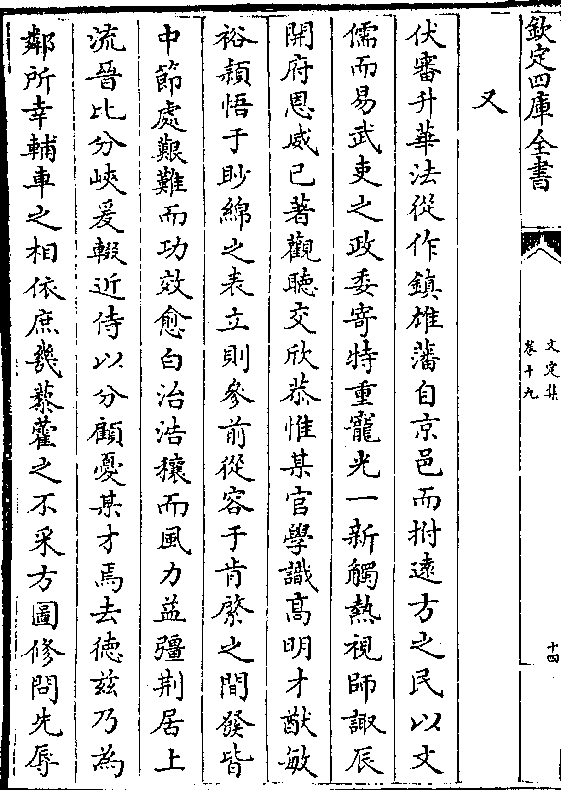 欽定四庫全書
文定集
卷十九
十四
又
伏審升華法從作鎮雄藩自京邑而拊逺方之民以文
儒而易武吏之政委寄特重寵光一新觸熱視師諏辰
開府恩威已著觀聽交欣恭惟某官學識高明才猷敏
裕頴悟于眇綿之表立則參前從容于肯綮之間發皆
中節處艱難而功效愈白治浩穰而風力益彊荆居上
流晉比分峽爰輟近侍以分顧憂某才焉去徳兹乃為
鄰所幸輔車之相依庶幾藜藿之不采方圖修問先辱